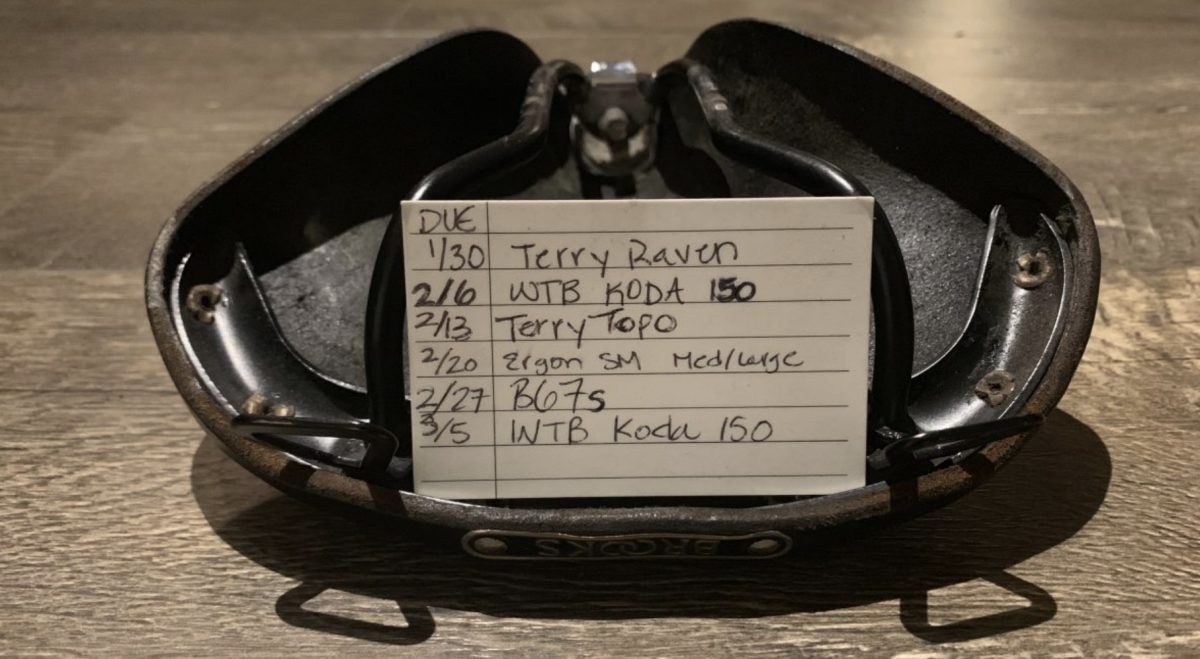 DUE
1/30 Terry Raven
2/6 WTB KODA 150
2/13 Terry Topo
2/20 Ergon SM Med/Large
2/27 B67s
3/5 WTB Koda 150
BROOKS